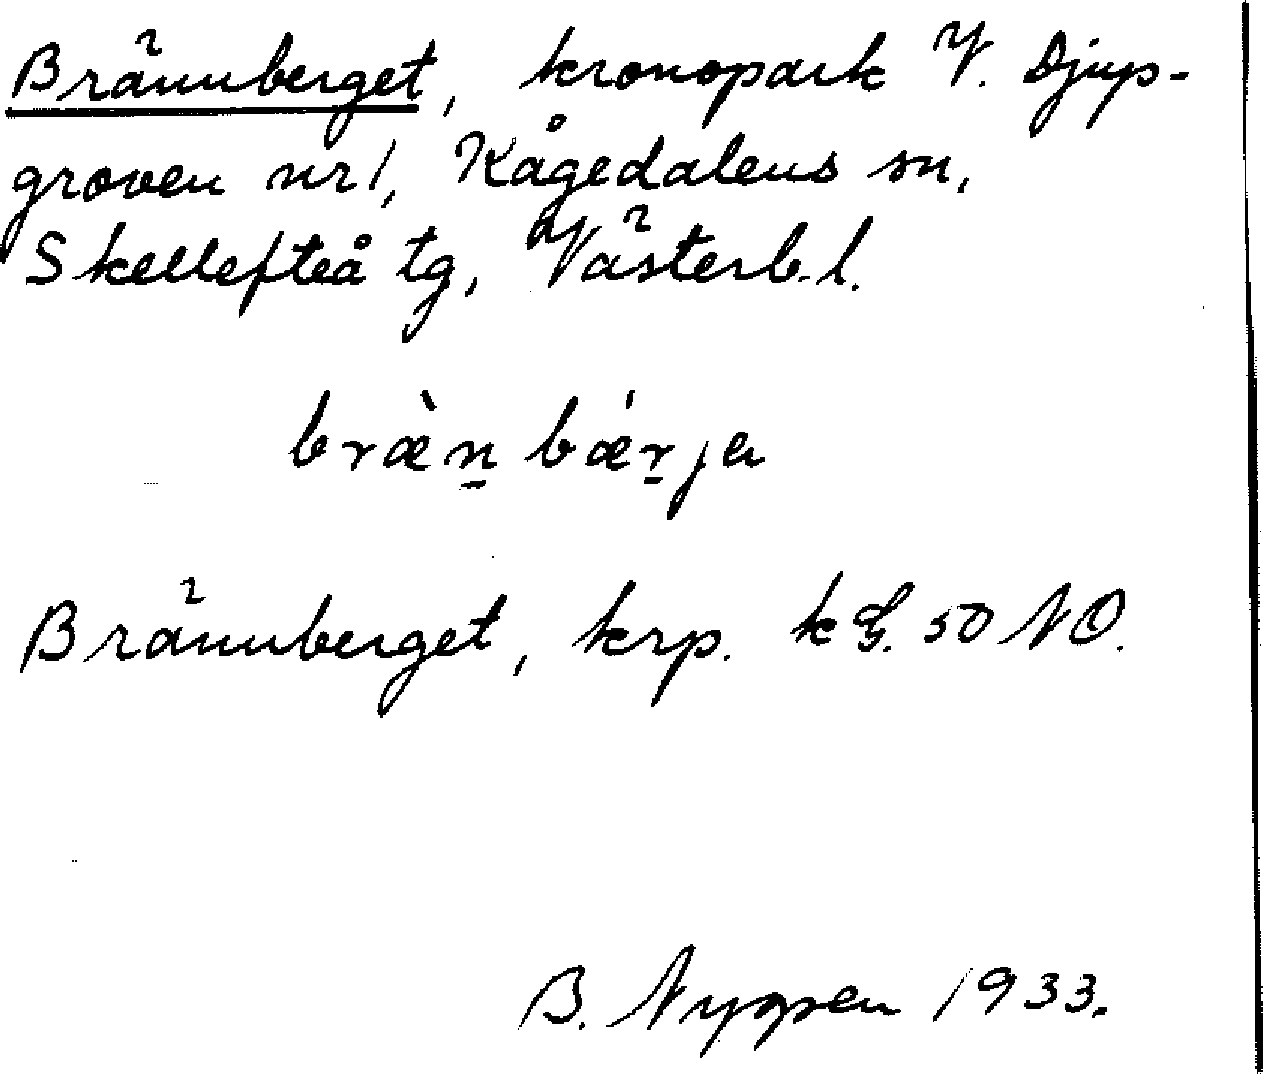 Brännberget, kronopark V. Djup-
groven nr 1, Kågedalens sn,
Skellefteå tg, Västerb. l.
bræ̀n̠ bǽr̠ja
Brännberget, krp. k G. 50 NO.
B. 1933.